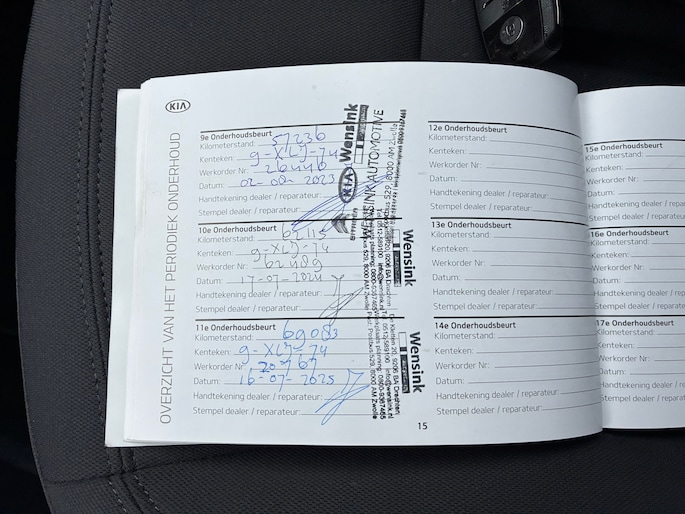 KIA
OVERZICHT VAN HET PERIODIEK ONDERHOUD
9e Onderhoudsbeurt
Kilometerstand: 57236
Kenteken: 9-XLJ-74
Werkorder Nr: 26440
Datum: 02-08-2023
Handtekening dealer / reparateur:
Stempel dealer / reparateur:
10e Onderhoudsbeurt
Kilometerstand: 62115
Kenteken: 9-XLJ-74
Werkorder Nr: 62489
Datum: 17-07-2024
Handtekening dealer / reparateur:
Stempel dealer / reparateur:
11e Onderhoudsbeurt
Kilometerstand: 69083
Kenteken: 9-XLJ-74
Werkorder Nr:
Datum: 16-07-2025
Handtekening dealer / reparateur:
Stempel dealer / reparateur:
KIA Wensink
WENSINK AUTOMOTIVE
Wensink
Wensink
12e Onderhoudsbeurt
Kilometerstand:
Kenteken:
Werkorder Nr:
Datum:
Handtekening dealer / reparateur:
Stempel dealer / reparateur:
13e Onderhoudsbeurt
Kilometerstand:
Kenteken:
Werkorder Nr:
Datum:
Handtekening dealer / reparateur:
Stempel dealer / reparateur:
14e Onderhoudsbeurt
Kilometerstand:
Kenteken:
Werkorder Nr:
Datum:
Handtekening dealer / reparateur:
Stempel dealer / reparateur:
15
15e Onderhoudsbeurt
Kilometerstand:
Kenteken:
Werkorder Nr:
Datum:
Handtekening dealer / reparateur:
Stempel dealer / reparateur:
16e Onderhoudsbeurt
Kilometerstand:
Kenteken:
Werkorder Nr:
Datum:
Handtekening dealer / repa
Stempel dealer / reparateur:
17e Onderhoudsbeurt
Kilometerstand:
Kenteken:
Werkorder Nr:
Datum:
Handtekening dealer / reparateur:
Stempel dealer / reparateur: